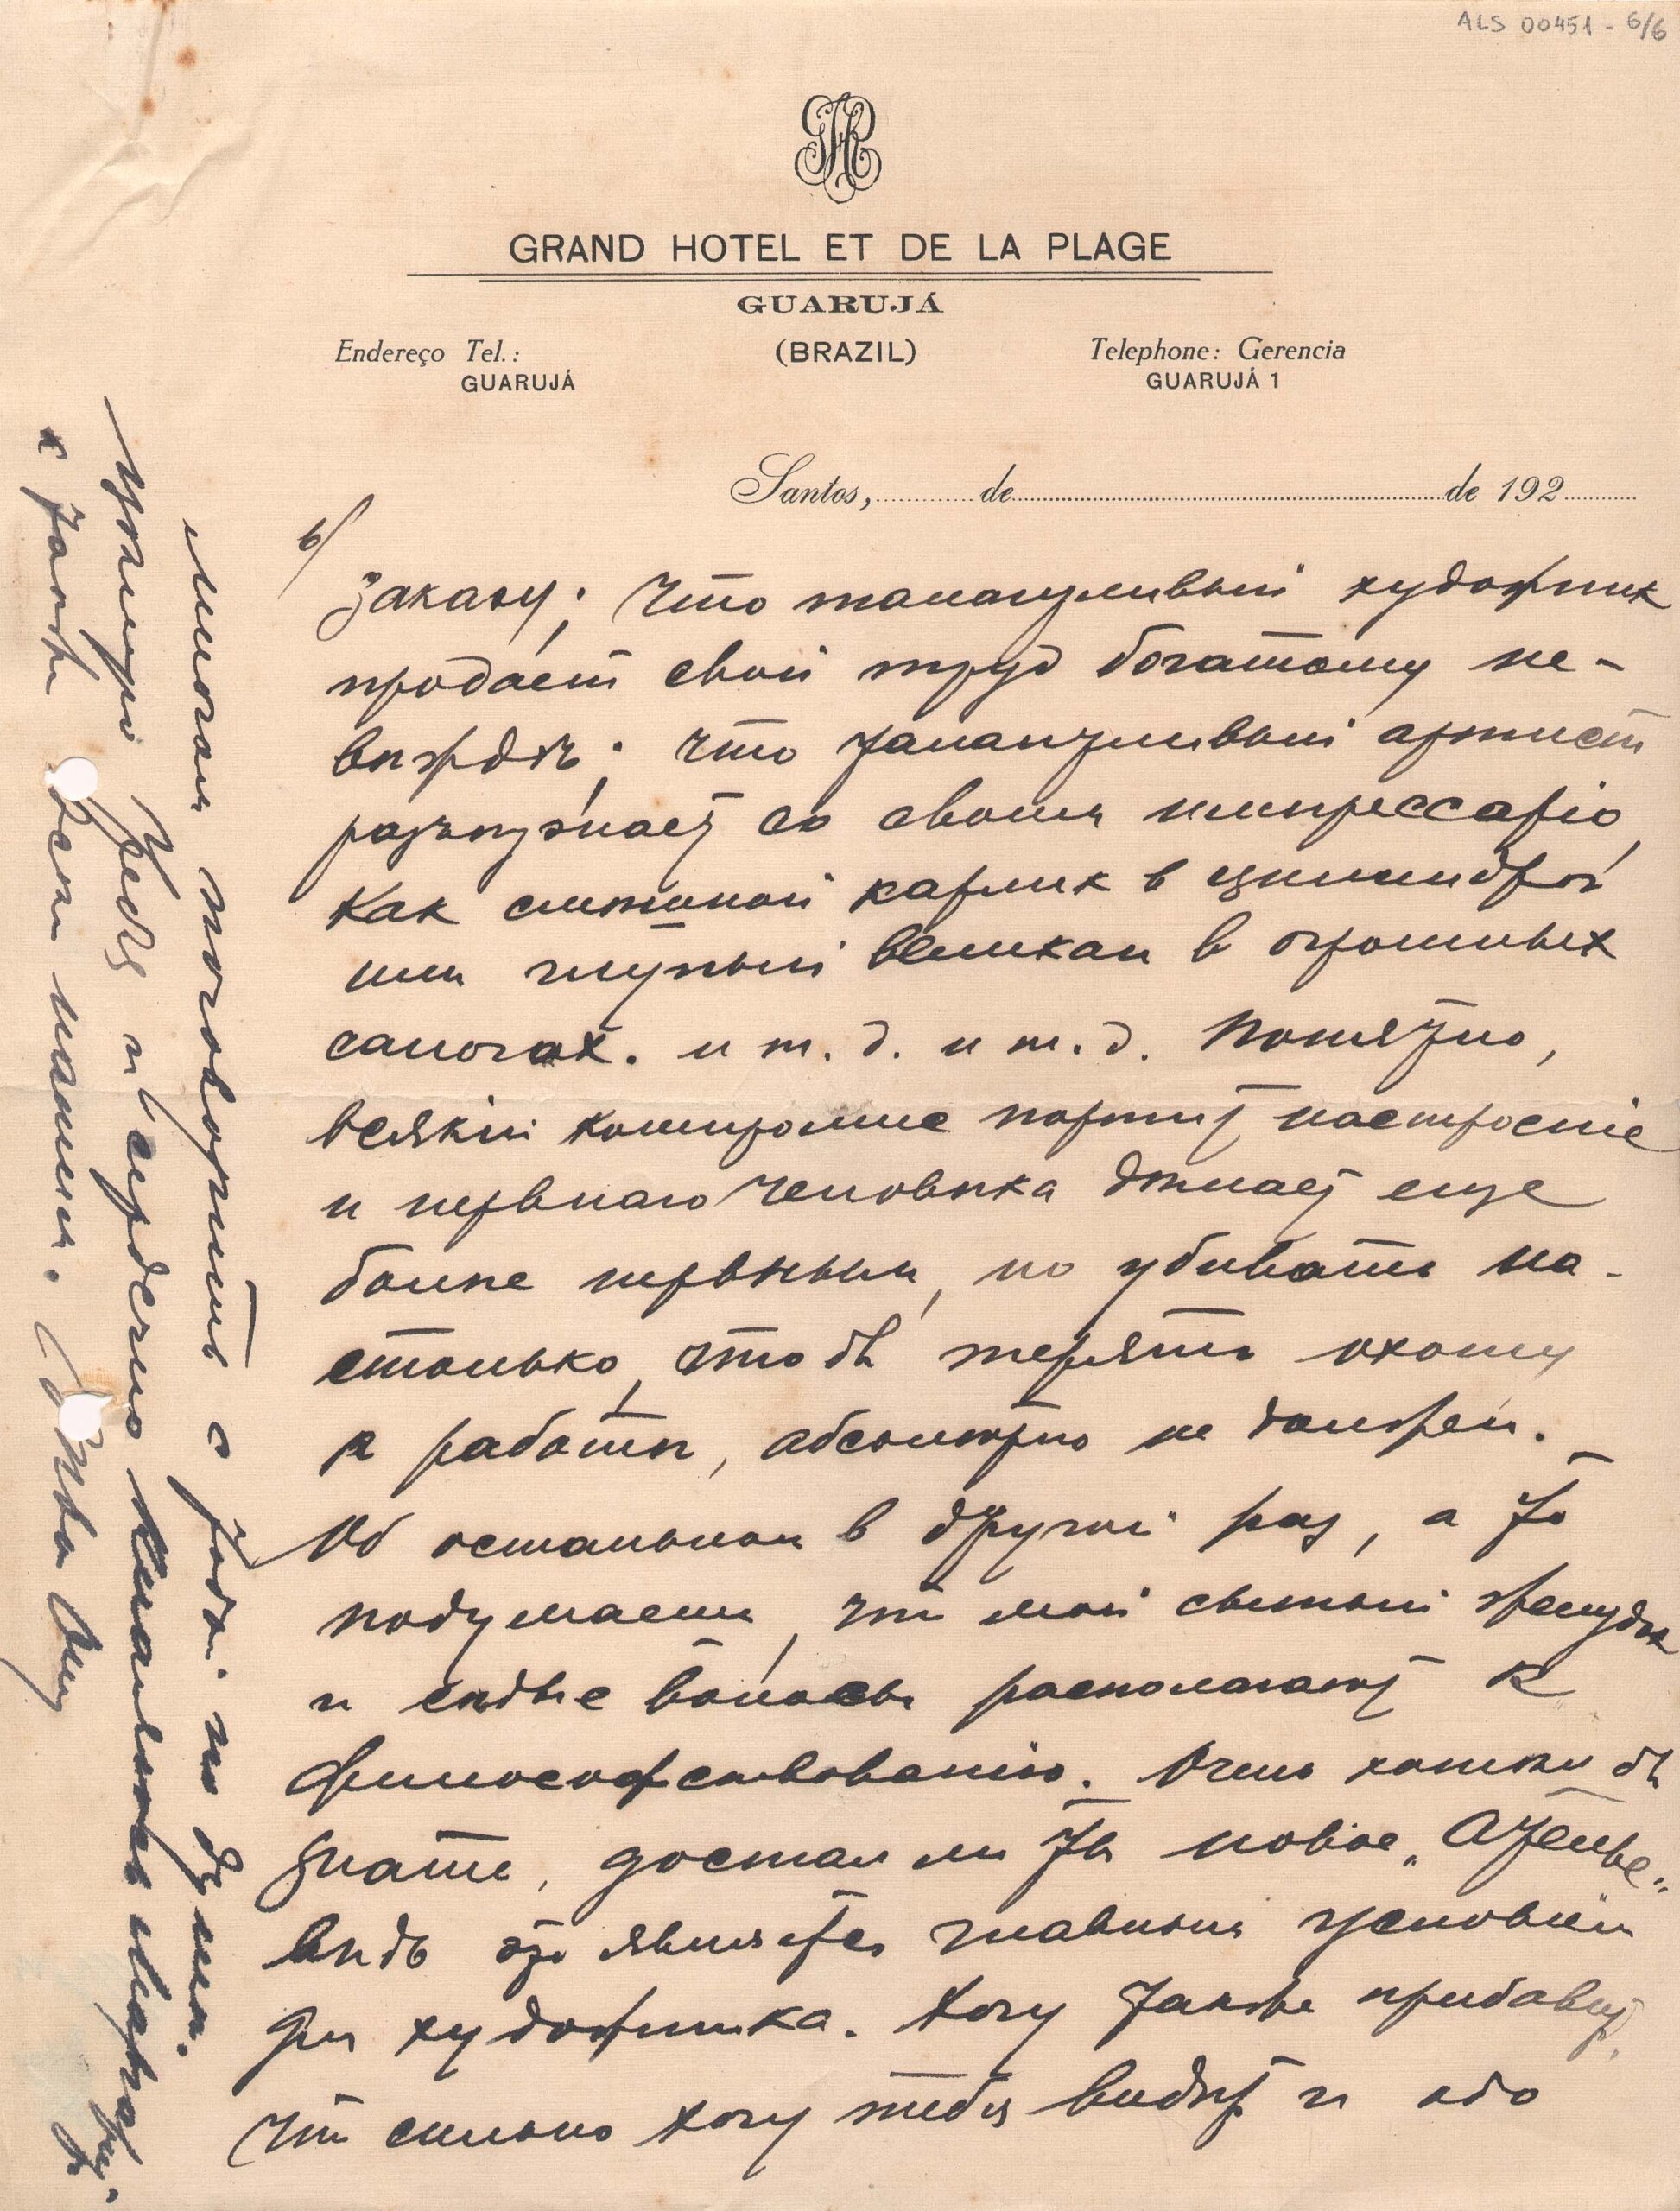 ALS 00451 - 6/6
GRAND HOTEL ET DE LA PLAGE
GUARUJÁ
(BRAZIL)
Endereço Tel.:
GUARUJÁ
Telephone: Gerencia
GUARUJÁ 1
Santos, de de 192
6/
заказу; что талантливый художник
продает свой труд богатому не-
вѣждѣ; что талантливый артист
разъѣзжает со своим импрессаріо,
как смѣшной карлик в цилиндрѣ
или глупый великан в огромных
сапогах. и т. д. и т. д. Понятно,
всякій компромис портит настроеніе
и нервнаго человѣка дѣлает еще
болѣе нервным, но убивать на-
столько, чтоб терять охоту
к работѣ, абсолютно не должен.
Об остальном в другой раз, а то
подумаеш, что мой сытый желудок
и сѣдые волосы располагают к
философствованію. Очень хотѣл б
знать, достал ли ты новое „Ателье"
вѣдь это является главным условіем
для художника. Хочу также прибавит,
что сильно хочу тебя видѣт и обо
многом поговорить с тобой по душам.
Цѣлую тебя и сердечно кланяюсь
также всем нашим.